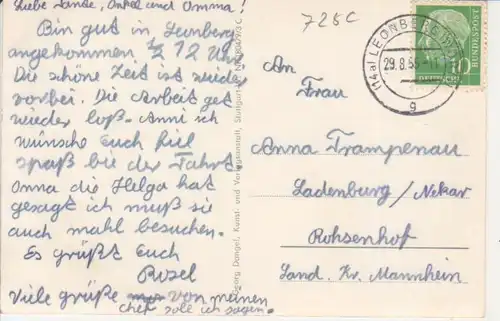 Liebe Tande, Onkel und Omma!
Bin gut in Leonberg
angekommen 1/2 12 Uhr.
Die schöne Zeit ist wieder
vorbei. Die Arbeit get
wieder loß. Anni ich
wünsche Euch fiel
spaß bie der Fahrt
Onna die Helga hat
gesagt ich muß sie
auch mahl besuchen.
Es grüßt Euch
Rosel
Viele grüße von meinen
chef soll ich sagen.
Georg Dangel, Kunst- und Verlagsanstalt, Stuttgart
725C
(14a) LEONBERG
29.8.55
g
DEUTSCHE BUNDESPOST
10
An
Frau
Anna Trampenau
Ladenburg/Nekar
Rohsenhof
Land. Kr. Mannheim